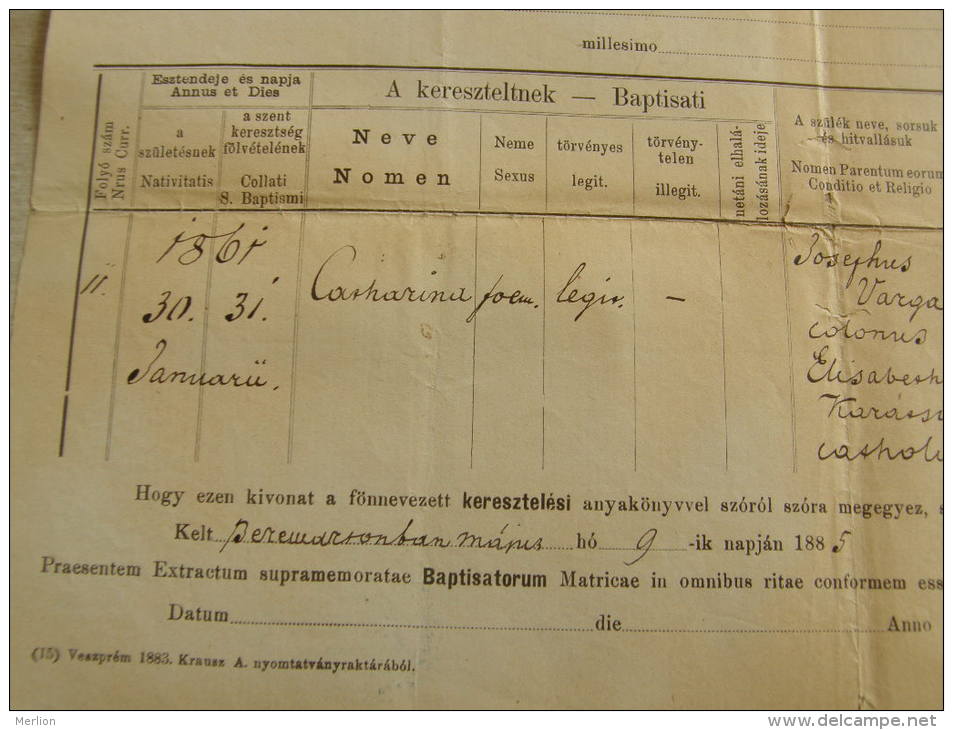 millesimo
Esztendeje és napja
Annus et Dies
A kereszteltnek — Baptisati
Folyó szám
Nrus Curr.
a
születésnek
Nativitatis
a szent
keresztség
fölvételének
Collati
S. Baptismi
Neve
Nomen
Neme
Sexus
törvényes
legit.
törvény-
telen
illegit.
netáni elhalá-
lozásának ideje
A szülék neve, sorsuk
és hitvallásuk
Nomen Parentum eorum
Conditio et Religio
1861
11.
30. 31.
Januarii.
Catharina
foem.
legit.
—
Josephus
Varga
colonus
Elisabeth
Karács
cathol
Hogy ezen kivonat a fönnevezett keresztelési anyakönyvvel szóról szóra megegyez, s
Kelt Beremartonban május hó 9 -ik napján 1885
Praesentem Extractum supramemoratae Baptisatorum Matricae in omnibus ritae conformem ess
Datum die Anno
(15) Veszprém 1883. Krausz A. nyomtatványraktárából.
Merlion
www.delcampe.net